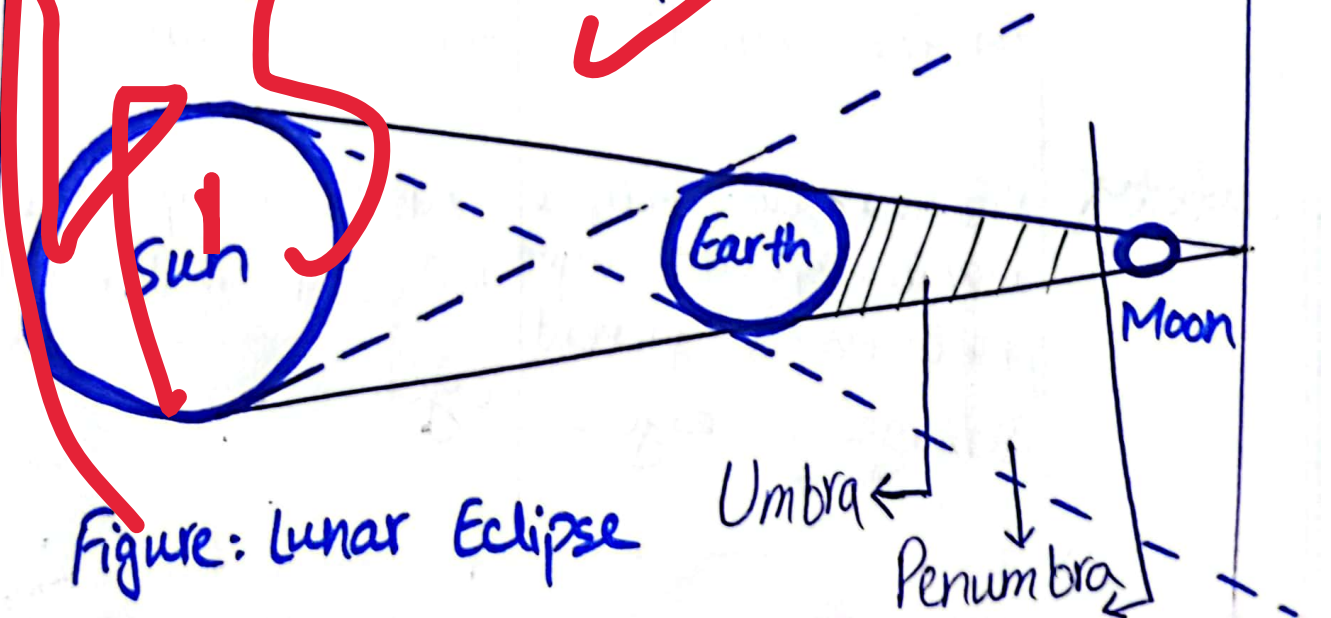 1
Sun
Earth
Moon
Umbra
Penumbra
Figure: Lunar Eclipse